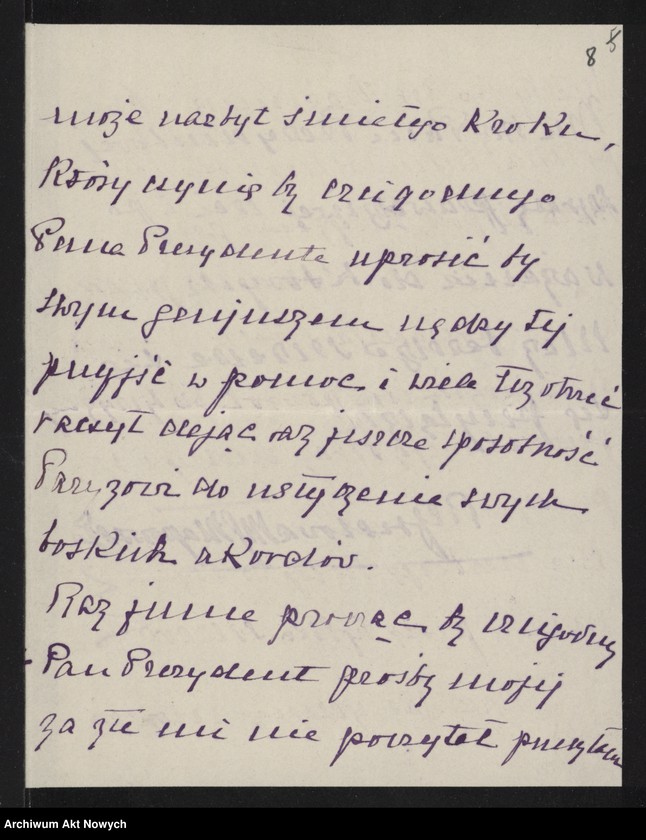 8 5
może nazbyt śmiałego kroku,
który czynię by czcigodnego
Pana Prezydenta uprosić by
swym genjuszem nędzy tej
przyjść w pomoc i wiele łez otrzeć
raczył dając raz jeszcze sposobność
Paryżowi do usłyszenia swych
boskich akordów.
Raz jeszcze prosząc by czcigodny
Pan Prezydent prośby mojej
za złe mi nie poczytał
Archiwum Akt Nowych